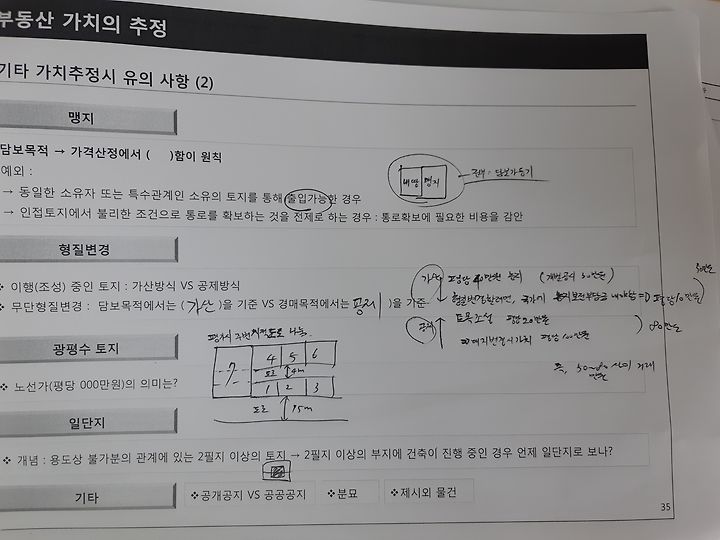 부동산 가치의 추정
기타 가치추정시 유의 사항 (2)
맹지
담보목적 → 가격산정에서 (    )함이 원칙
예외 :
→ 동일한 소유자 또는 특수관계인 소유의 토지를 통해 출입가능한 경우
→ 인접토지에서 불리한 조건으로 통로를 확보하는 것을 전제로 하는 경우 : 통로확보에 필요한 비용을 감안
내땅 맹지
형질변경
❖ 이행(조성) 중인 토지 : 가산방식 VS 공제방식
❖ 무단형질변경 : 담보목적에서는 (가산)을 기준 VS 경매목적에서는(공제)을 기준
가산
공제
토목조성 평당 20만원
80만원
광평수 토지
❖ 노선가(평당 000만원)의 의미는?
7 4 5 6
도로 4m
1 2 3
도로 15m
일단지
❖ 개념 : 용도상 불가분의 관계에 있는 2필지 이상의 토지 → 2필지 이상의 부지에 건축이 진행 중인 경우 언제 일단지로 보나?
기타
❖공개공지 VS 공공공지
❖분묘
❖제시외 물건
35